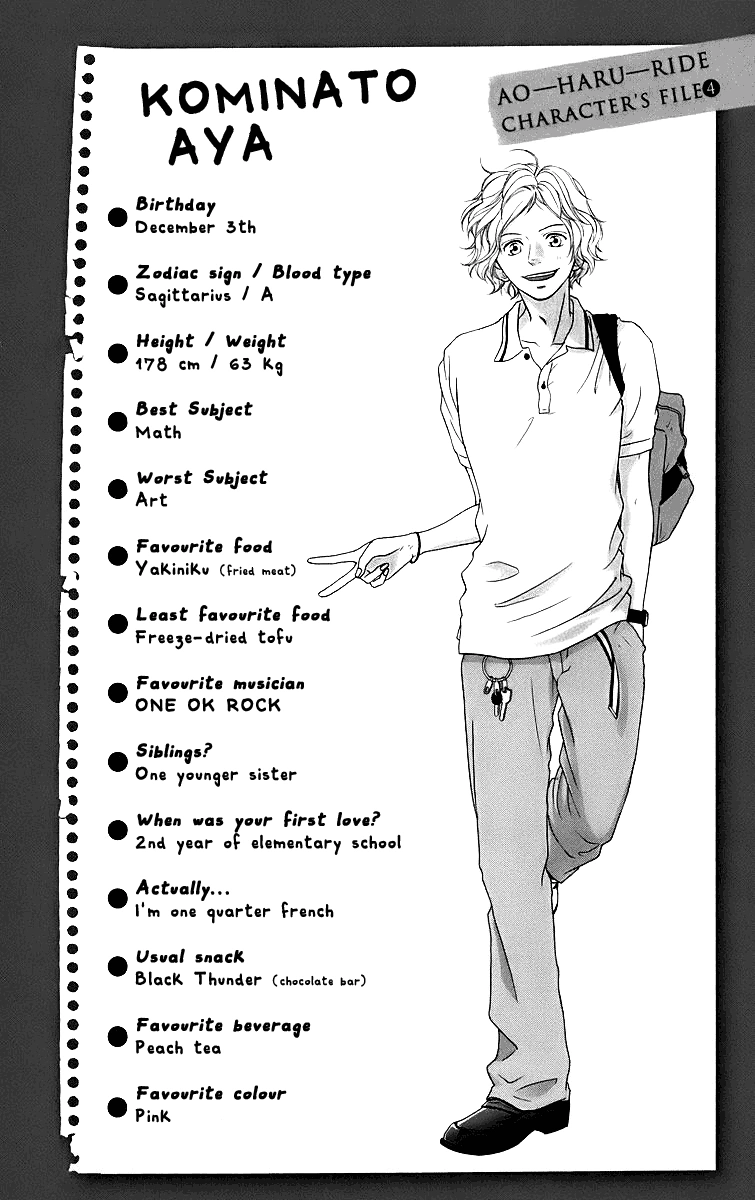 KOMINATO
AYA
AO—HARU—RIDE
CHARACTER'S FILE❹
Birthday
December 3th
Zodiac sign / Blood type
Sagittarius / A
Height / Weight
178 cm / 63 Kg
Best Subject
Math
Worst Subject
Art
Favourite food
Yakiniku (fried meat)
Least favourite food
Freeze-dried tofu
Favourite musician
ONE OK ROCK
Siblings?
One younger sister
When was your first love?
2nd year of elementary school
Actually...
I'm one quarter french
Usual snack
Black Thunder (chocolate bar)
Favourite beverage
Peach tea
Favourite colour
Pink